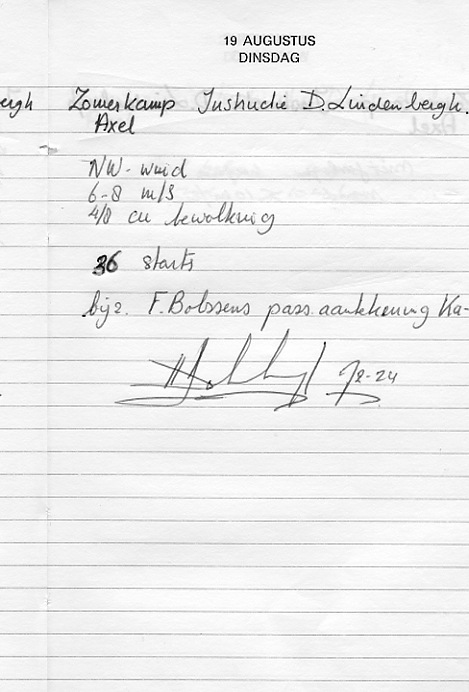 19 AUGUSTUS
DINSDAG
ergh Zomerkamp Instructie D. Lindenbergh.
Axel
NW-wind
6-8 m/s
4/8 cu bewolking
36 starts
bijz. F. Bolssens pass. aantekening Ka-